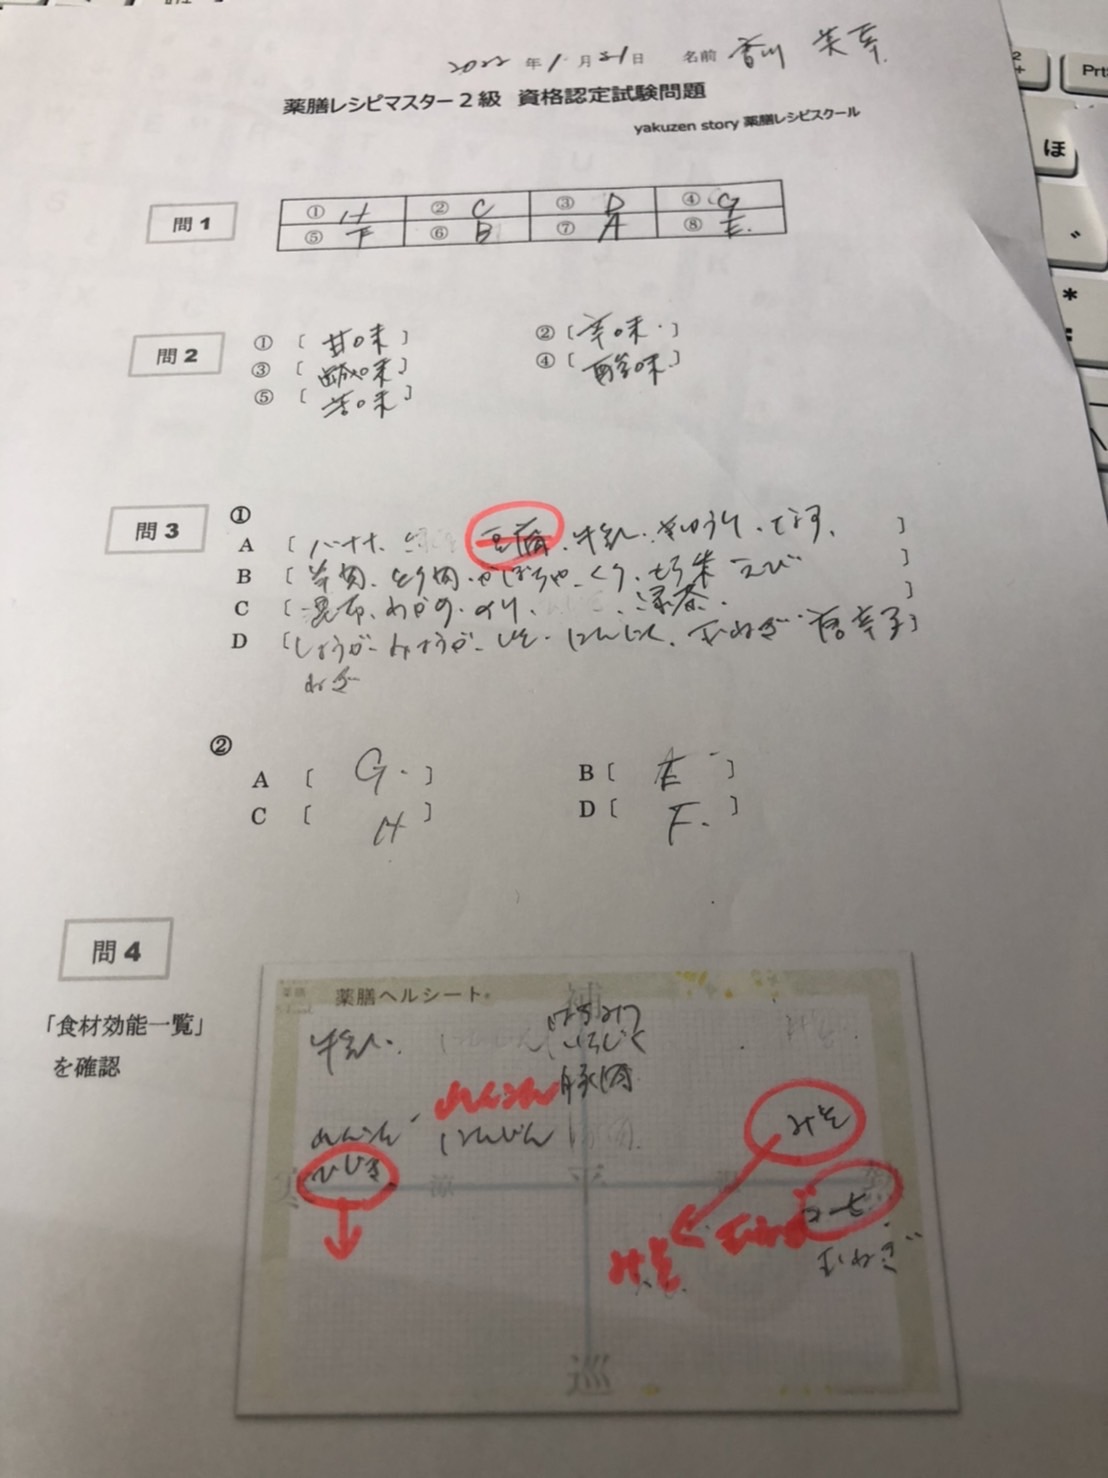 2022年1月21日 名前 香川
薬膳レシピマスター2級 資格認定試験問題
yakuzen story 薬膳レシピスクール
問1
① H ② C ③ D ④ G
⑤ F ⑥ B ⑦ A ⑧ E.
問2
① [ 甘味 ] ② [ 辛味・ ]
③ [ 鹹味 ] ④ [ 酸味. ]
⑤ [ 苦味 ]
問3
①
A [ バナナ、 豆腐、牛乳、きゅうり、なす、 ]
B [ 羊肉、とり肉、かぼちゃ、くり、もち米 えび ]
C [ 昆布、わかめ、のり、 緑茶. ]
D [ しょうが、みょうが、しそ、にんにく、玉ねぎ 唐辛子 ]
ねぎ
②
A [ G. ] B [ E ]
C [ H ] D [ F. ]
問4
「食材効能一覧」
を確認
薬膳ヘルシート
補
はちみつ
牛乳.
いちじく
豚肉
れんこん
みそ
れんこん にんじん
ひじき
涼 平 温 熱
玉ねぎ
みそ
玉ねぎ
巡
ほ
Prt
*